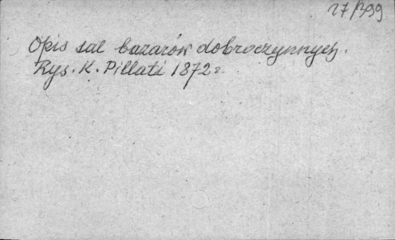 27/399
Opis sal bazarów dobroczynnych.
Rys. K. Pillati 1872 r.